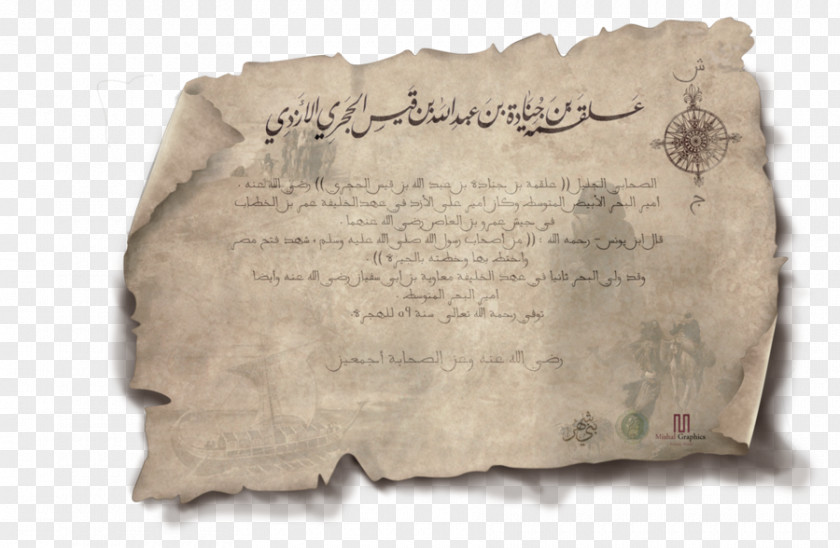 ش
علقمة بن جُنادة بن عبدالله بن قيس الحجري الأزدي
ج
الصحابي الجليل (( علقمة بن جنادة بن عبد الله بن قيس الحجري )) رضي الله عنه .
امير البحر الأبيض المتوسط وكان امير على الأزد في عهد الخليفة عمر بن الخطاب
في جيش عمرو بن العاص رضي الله عنهما .
قال ابن يونس- رحمه الله : (( من اصحاب رسول الله صلى الله عليه وسلم ، شهد فتح مصر
واختط بها وخطته بالجيزة )) .
وقد ولي البحر ثانيا في عهد الخليفة معاوية بن ابي سفيان رضي الله عنه وايضا
امير البحر المتوسط .
توفي رحمة الله تعالى سنة ٥٩ للهجرة.
رضي الله عنه وعن الصحابة اجمعين
بني شهر
Mishal Graphics